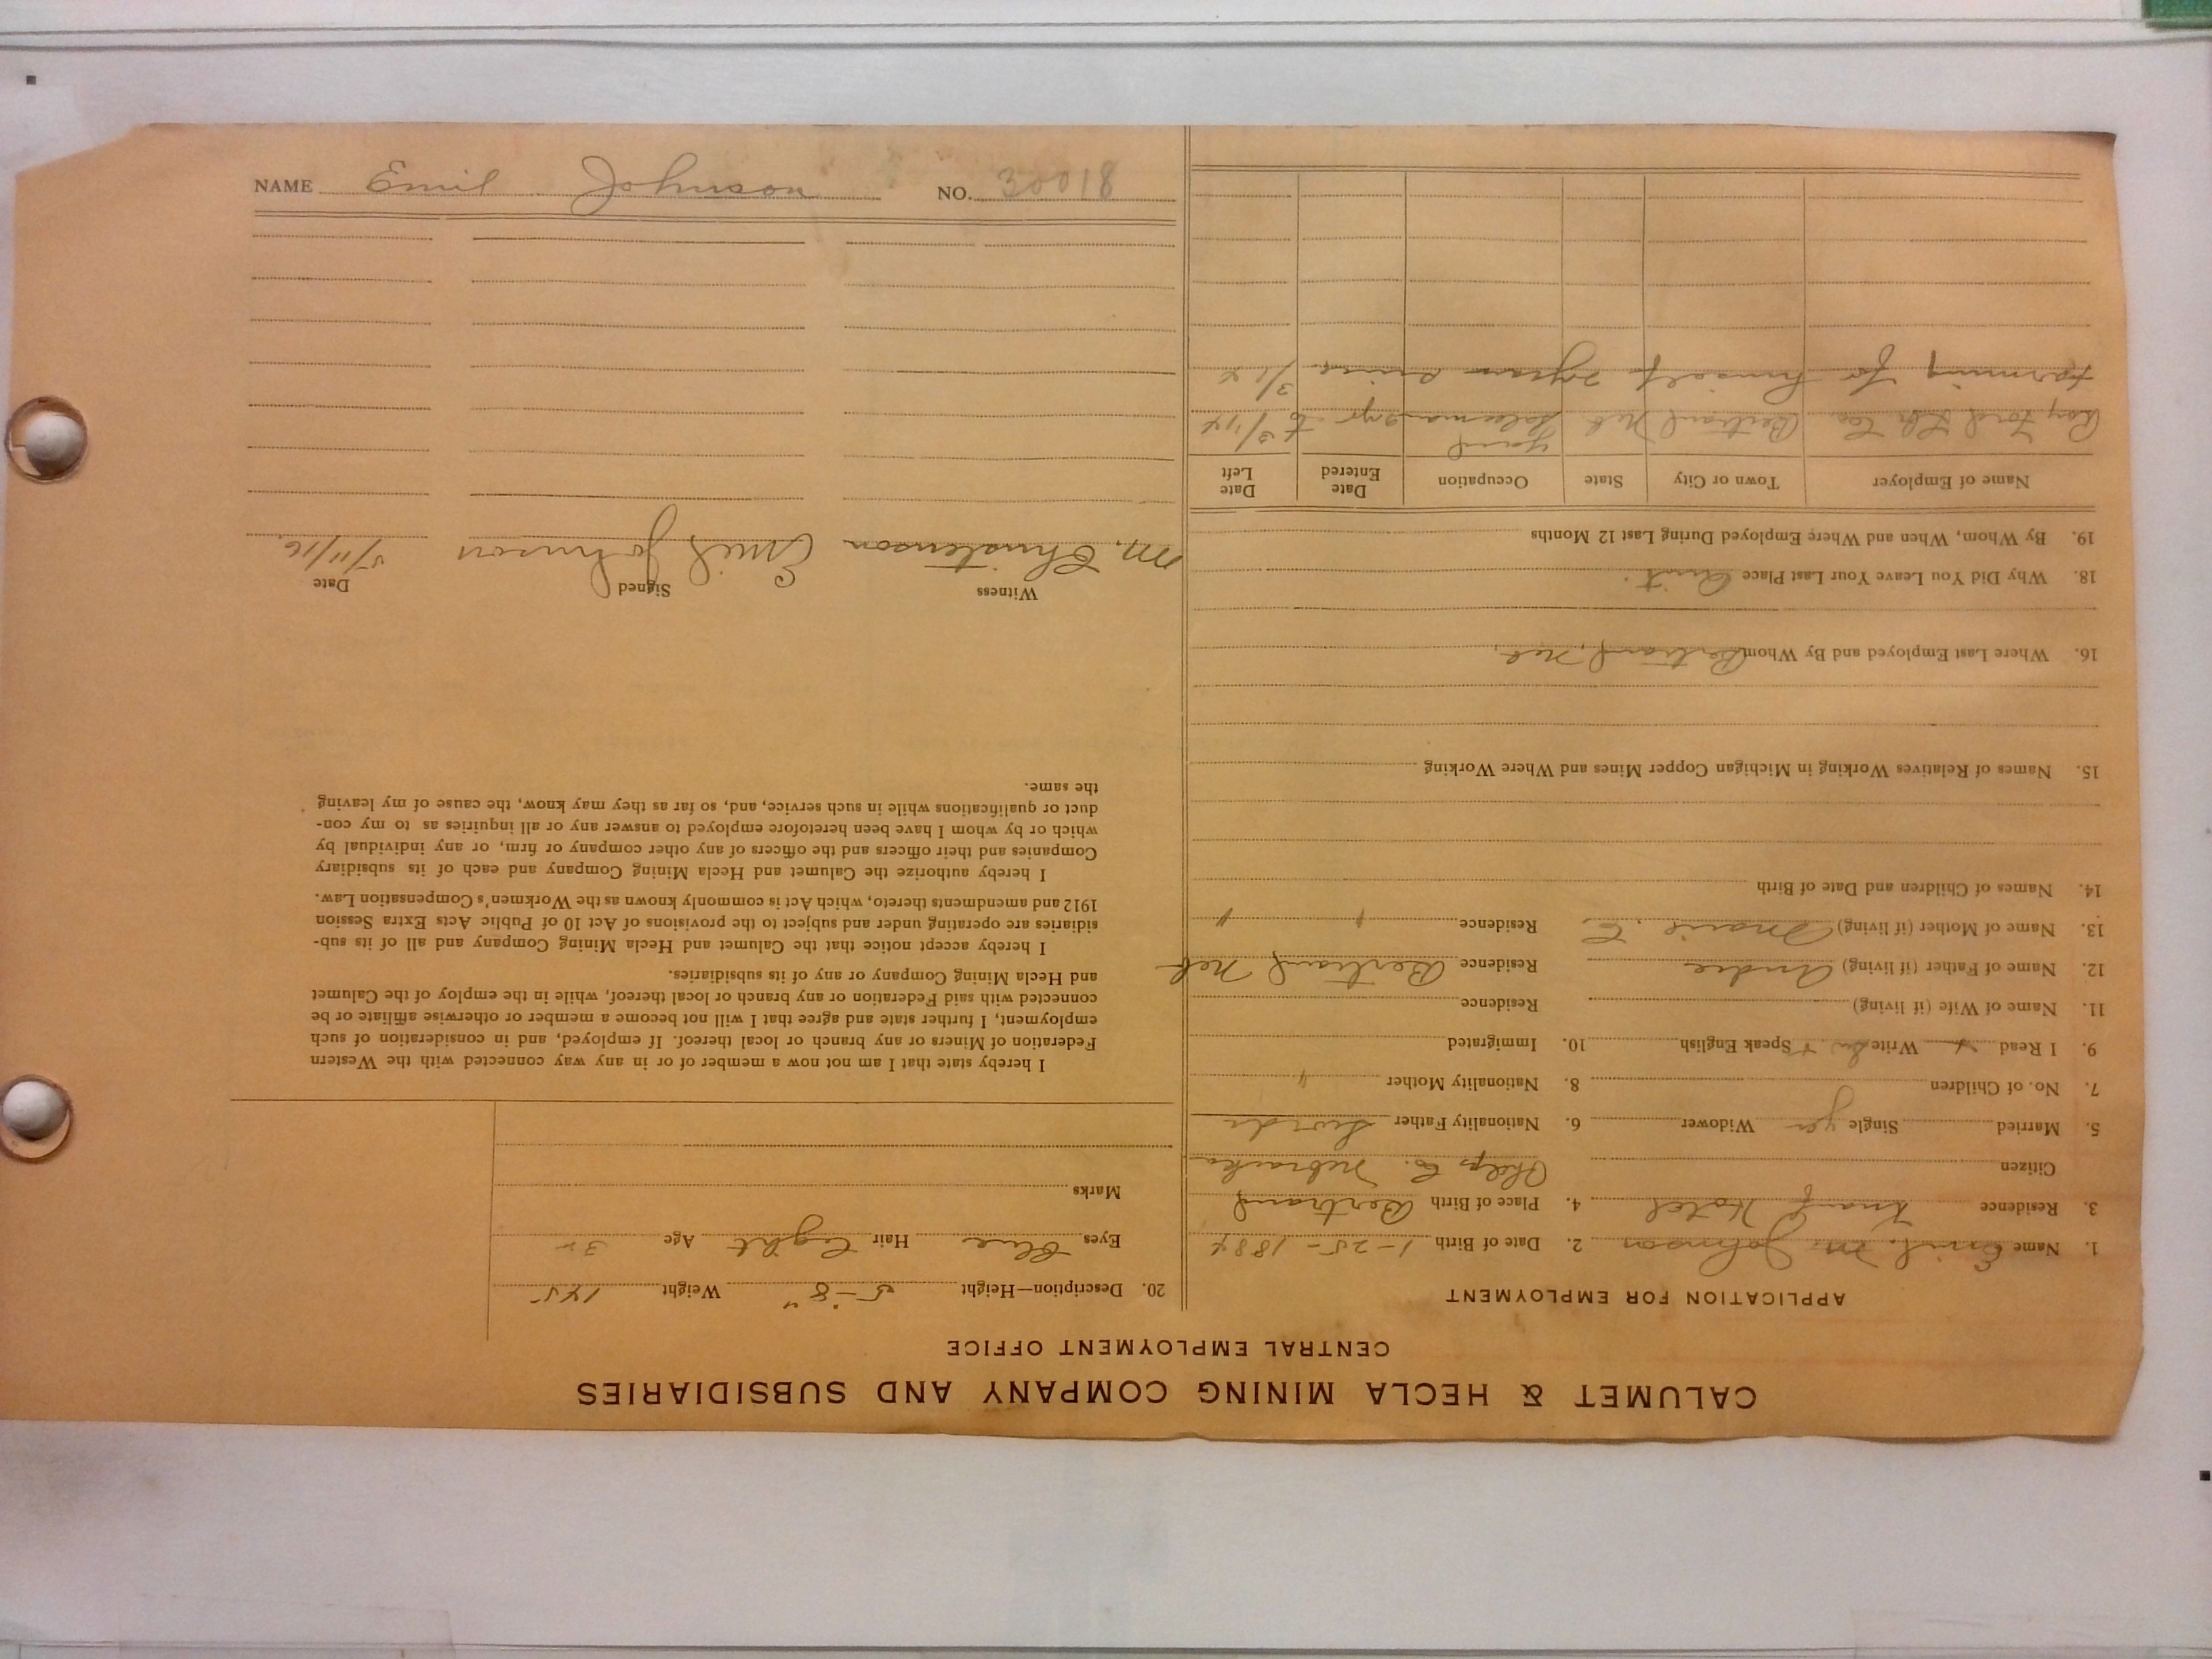 CALUMET & HECLA MINING COMPANY AND SUBSIDIARIES
CENTRAL EMPLOYMENT OFFICE
APPLICATION FOR EMPLOYMENT
1. Name Emil. M. Johnson 2. Date of Birth 1-25-1884
3. Residence Knauf Hotel 4. Place of Birth Bertrand
Citizen Phelps Co. Nebraska
5. Married Single yes Widower 6. Nationality Father Swede
7. No. of Children 8. Nationality Mother "
9. I Read Write Speak English 10. Immigrated
11. Name of Wife (if living) Residence
12. Name of Father (if living) Andre Residence Bertrand Neb
13. Name of Mother (if living) Marie, C. Residence " "
14. Names of Children and Date of Birth
15. Names of Relatives Working in Michigan Copper Mines and Where Working
16. Where Last Employed and By Whom Bertrand, Neb,
18. Why Did You Leave Your Last Place Quit.
19. By Whom, When and Where Employed During Last 12 Months
Name of Employer Town or City State Occupation Date Entered Date Left
Roy Ford Lbr Co. Bertrand Neb Yard salesman 2 yr to 3/14
Farming for himself 2 years since 3/14
20. Description—Height 5-8" Weight 145
Eyes Blue Hair Light Age 32
Marks
I hereby state that I am not now a member of or in any way connected with the Western
Federation of Miners or any branch or local thereof. If employed, and in consideration of such
employment, I further state and agree that I will not become a member or otherwise affiliate or be
connected with said Federation or any branch or local thereof, while in the employ of the Calumet
and Hecla Mining Company or any of its subsidiaries.
I hereby accept notice that the Calumet and Hecla Mining Company and all of its sub-
sidiaries are operating under and subject to the provisions of Act 10 of Public Acts Extra Session
1912 and amendments thereto, which Act is commonly known as the Workmen's Compensation Law.
I hereby authorize the Calumet and Hecla Mining Company and each of its subsidiary
Companies and their officers and the officers of any other company or firm, or any individual by
which or by whom I have been heretofore employed to answer any or all inquiries as to my con-
duct or qualifications while in such service, and, so far as they may know, the cause of my leaving
the same.
Witness Signed Date
M. Christenson Emil Johnson 5/11/16
NAME Emil Johnson NO. 30018